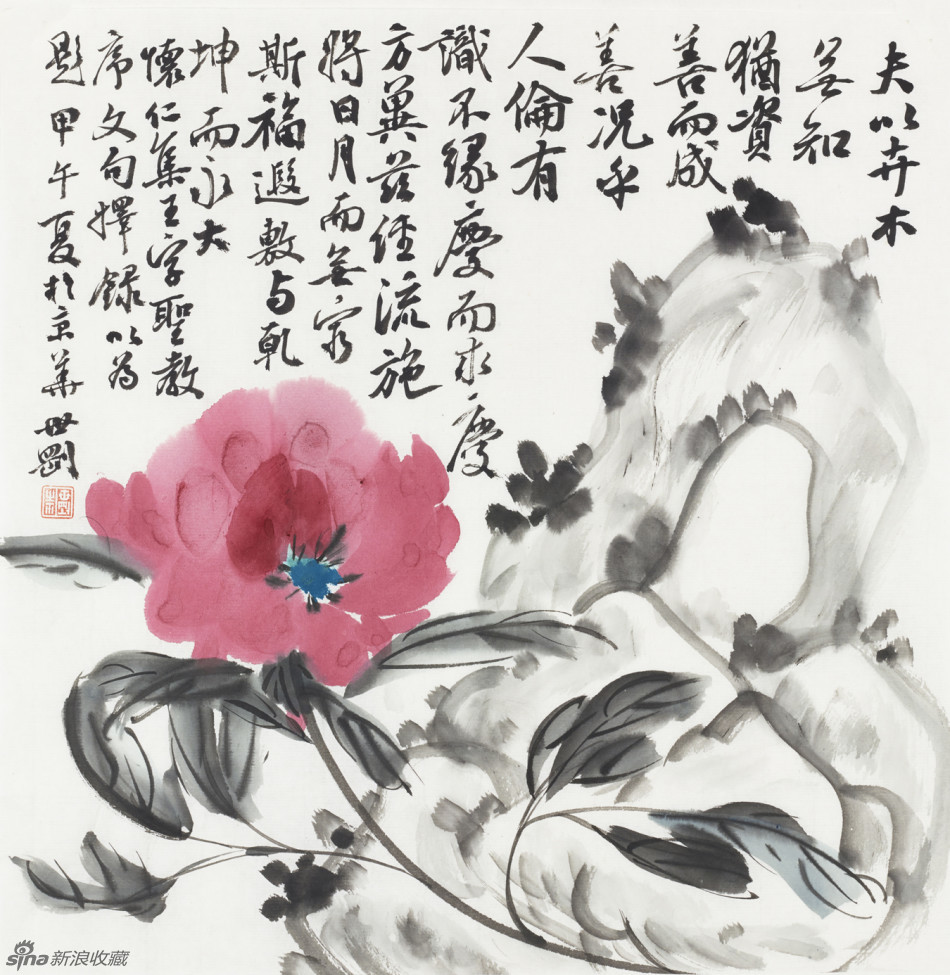 夫以卉木
無知
猶資
善而成
善況乎
人倫有
識不緣慶而求慶
方冀茲經流施
將日月而無窮
斯福遐敷与乾
坤而永大
懷仁集王字聖教
序文句擇録以為
題甲午夏於京華世剛
sina新浪收藏